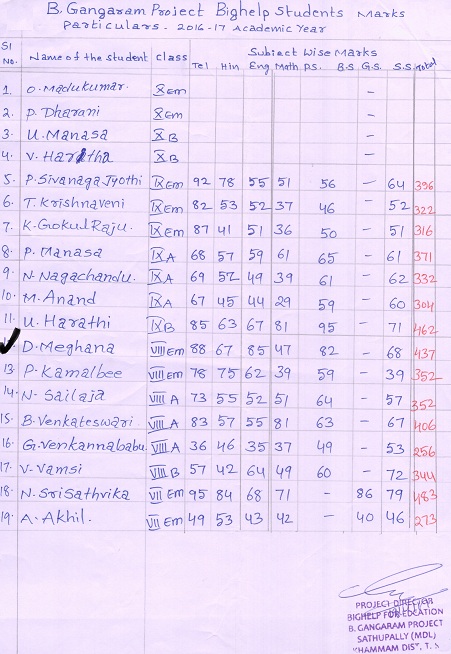 B. Gangaram Project Bighelp Students Marks
Particulars - 2016-17 Academic Year
Sl No. Name of the student Class Subject Wise Marks
Tel Hin Eng Math PS. B.S G.S. S.S Total
1. O. Madukumar. X Em -
2. P. Dharani X Em -
3. U. Manasa X B -
4. V. Haritha X B -
5. P. Sivanaga Jyothi IX Em 92 78 55 51 56 - 64 396
6. T. Krishnaveni IX Em 82 53 52 37 46 - 52 322
7. K. Gokul Raju. IX Em 87 41 51 36 50 - 51 316
8. P. Manasa IX A 68 57 59 61 65 - 61 371
9. N. Nagachandu. IX A 69 52 49 39 61 - 62 332
10. M. Anand IX A 67 45 44 29 59 - 60 304
11. U. Harathi IX B 85 63 67 81 95 - 71 462
D. Meghana VIII Em 88 67 85 47 82 - 68 437
13. P. Kamalbee VIII Em 78 75 62 39 59 - 39 352
14. N. Sailaja VIII A 73 55 52 51 64 - 57 352
15. B. Venkateswari. VIII A 83 57 55 81 63 - 67 406
16. G. Venkannababu. VIII A 36 46 35 37 49 - 53 256
17. V. Vamsi VIII B 57 42 64 49 60 - 72 344
18. N. Sri Sathvika VII Em 95 84 68 71 - 86 79 483
19. A. Akhil. VII Em 49 53 43 42 - 40 46 273
PROJECT DIRECTOR
BIGHELP FOR EDCATION
B. GANGARAM PROJECT
SATHUPALLY (MDL)
KHAMMAM DIST, T.S